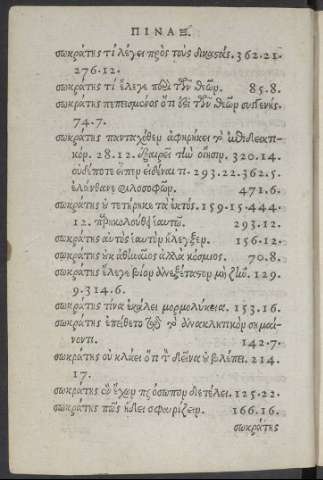 ΠΙΝΑΞ.
σωκράτης τί λέγει πρὸς τοὺς δικαστάς. 362.21.
276.12.
σωκράτης τί ἔλεγε περὶ τῶν θεῶν. 85.8.
σωκράτης πεπεισμένος ὅτι ἐστὶ τῶν θεῶν συγγενής.
74.7.
σωκράτης πανταχόθεν ἀφῃρήκει τὸ ἀποδεικτι-
κόν. 28.12. ἐξαιρεῖ τὴν οἴησιν. 320.14.
οὐδέποτε εἶπεν εἰδέναι τι. 293.22.362.5.
ἐλάνθανε φιλοσοφῶν. 471.6.
σωκράτης οὐ τετήρηκε τὰ ἐκτός. 159.15.444.
12. παρηκολούθει ἑαυτῷ. 293.12.
σωκράτης αὐτὸς ἑαυτὸν ἤλεγξεν. 156.12.
σωκράτης οὐκ ἀθηναῖος ἀλλὰ κόσμιος. 70.8.
σωκράτης ἔλεγε βίον ἀνεξέταστον μὴ ζῆν. 129.
9.314.6.
σωκράτης τίνα ἐκάλει μορμολύκεια. 153.16.
σωκράτης ἐπείθετο τῷ τὸ ἀνακλητικὸν σημαί-
νοντι. 142.7.
σωκράτης οὐ κλάει ὅτι τὸν δεῖνα οὐ βλέπει. 214.
17.
σωκράτης ἓν ἔχων πρόσωπον διετέλει. 125.22.
σωκράτης πῶς ᾔδει σφαιρίζειν. 166.16.
σωκράτης